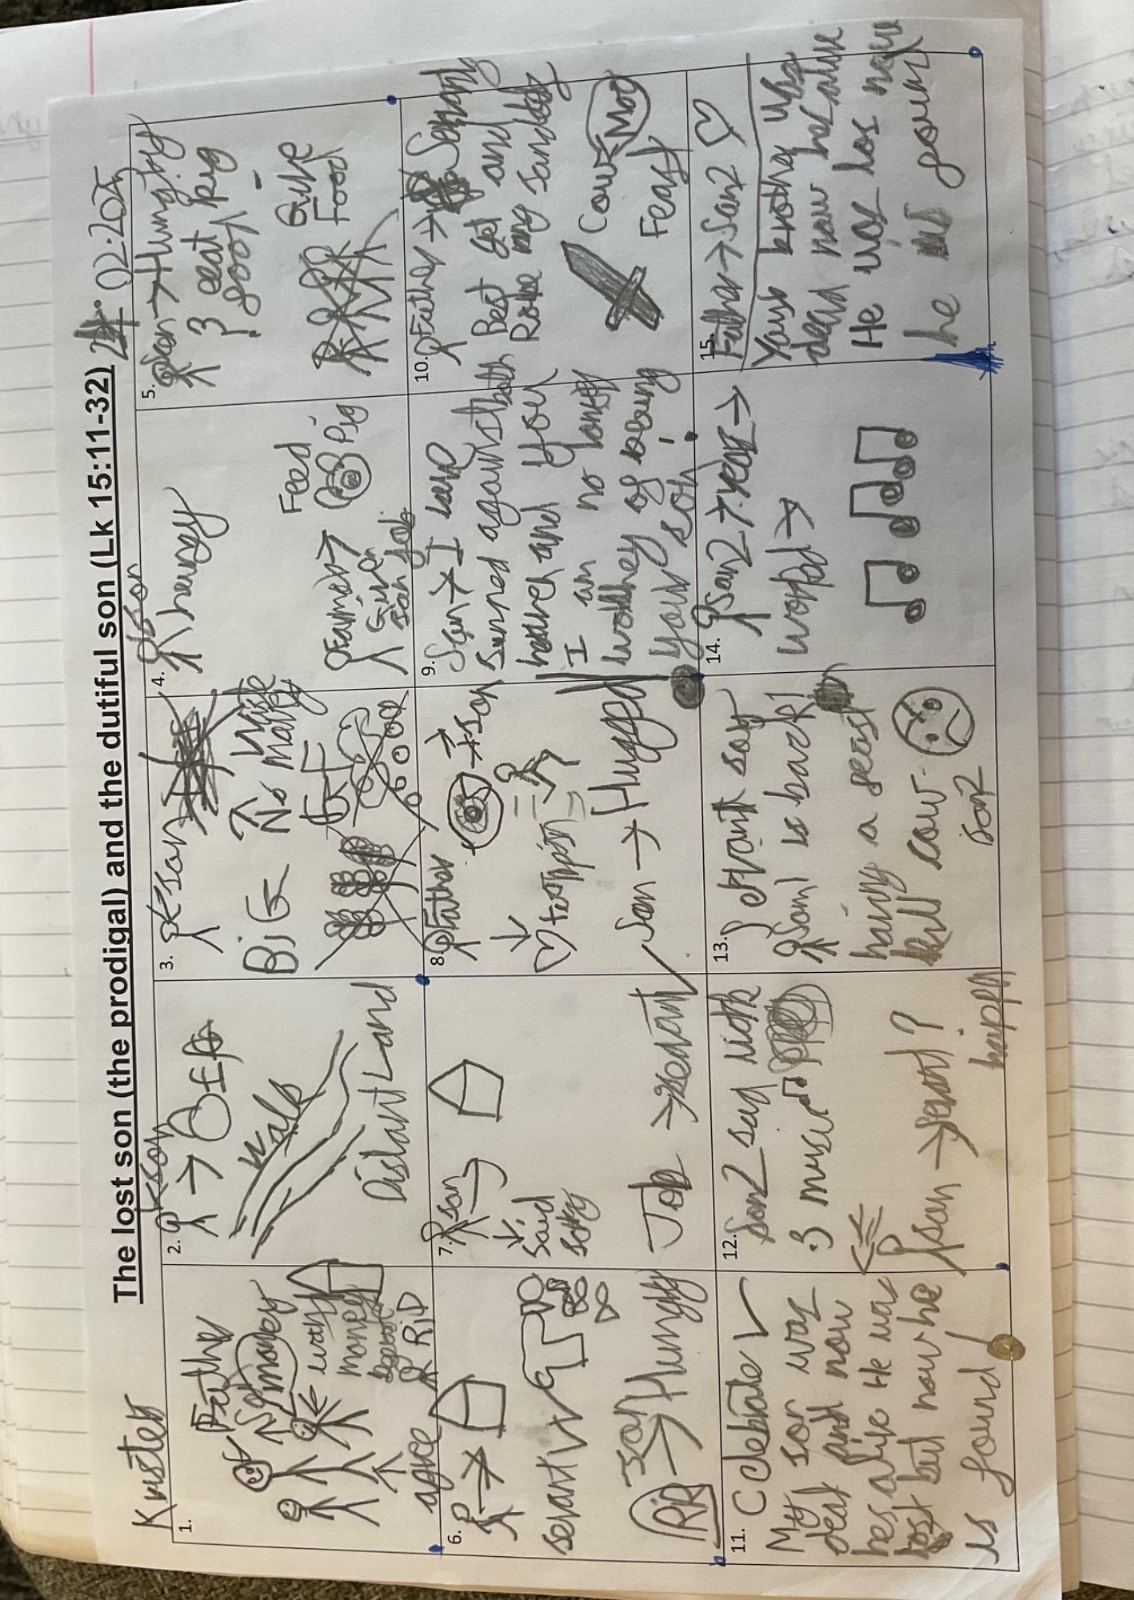 Kristen
The lost son (the prodigal) and the dutiful son (Lk 15:11-32)
02:20
1.
Father
money
with
money
RIP
agree
2.
son
Walk
Distant Land
3.
son
BiG
No
money
4.
son
hengy
Feed
Pig
Farmer →
Give
son job
5.
son → Hungry
eat pig
food
Give
Food
6.
servant
son
→ Hungry
7.
son
↓
Said
sorry
Job → servant
8.
Father → son
↓
Son → Hugged
9.
Son → I have
sinned against both
heaven and you
I am no longer
worthey of being
your son!
10.
Father → Servant
Best get and
Robe ring sandels
Cow
Feast
11. Celebrate ✓
My son was
deat and now
hes alive He was
lost but now he
is found!
12.
Son2 said
music
son → servant?
happen
13.
Servant say
Son1 is back!
having a feast
kill cow
Son2
14.
Son2 → year →
worked →
15.
Father → Son2 ♡
Your brothy was
dead now has alive
He was los now
he is found